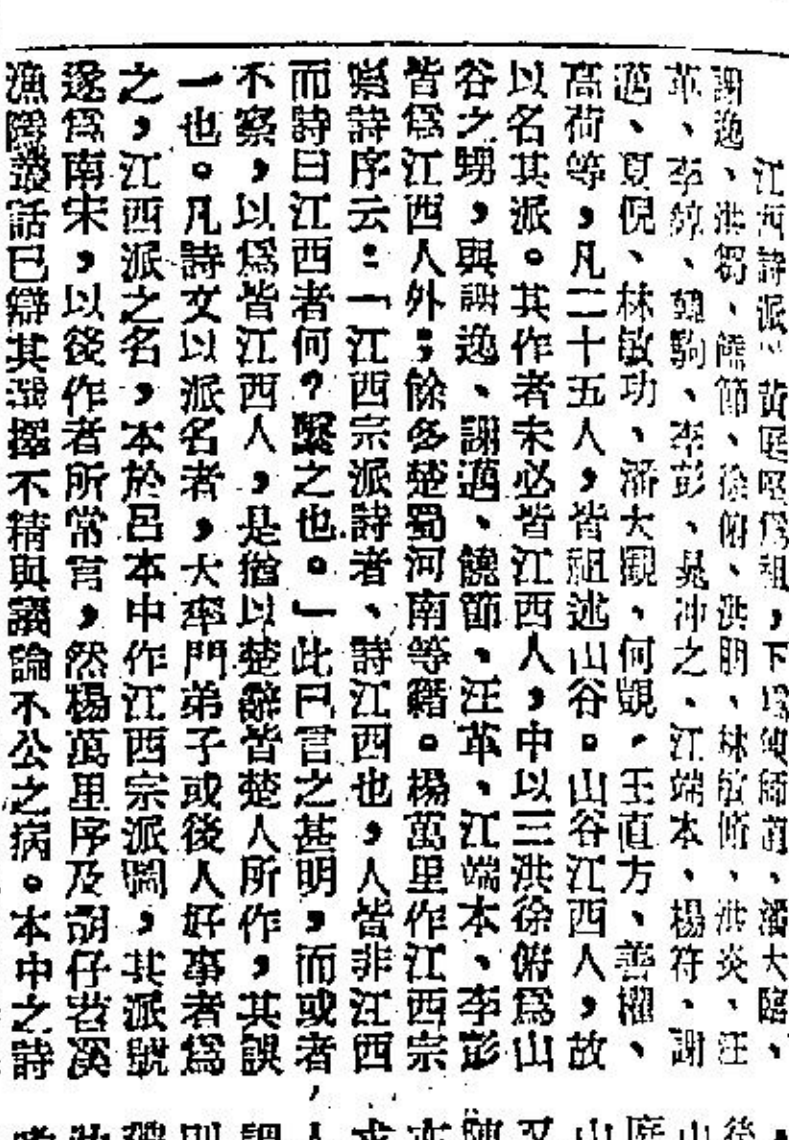 江西詩派、黃庭堅爲祖，下爲陳師道、潘大臨、
謝逸、洪芻、饒節、徐俯、洪朋、林敏修、洪炎、汪
革、李錞、韓駒、李彭、晁沖之、江端本、楊符、謝
薖、夏倪、林敏功、潘大觀、何覬、王直方、善權、
高荷等，凡二十五人，皆祖述山谷。山谷江西人，故
以名其派。其作者未必皆江西人，中以三洪徐俯爲山
谷之甥，與謝逸、謝薖、饒節、汪革、江端本、李彭
皆爲江西人外；餘多楚蜀河南等籍。楊萬里作江西宗
派詩序云：「江西宗派詩者、詩江西也，人皆非江西
而詩曰江西者何？繫之也。」此已言之甚明，而或者
不察，以爲皆江西人，是猶以楚辭皆楚人所作，其誤
一也。凡詩文以派名者，大率門弟子或後人好事者爲
之，江西派之名，本於呂本中作江西宗派圖，其派號
遂爲南宋，以後作者所常言，然楊萬里序及胡仔苕溪
漁隱叢話已辯其選擇不精與議論不公之病。本中之詩